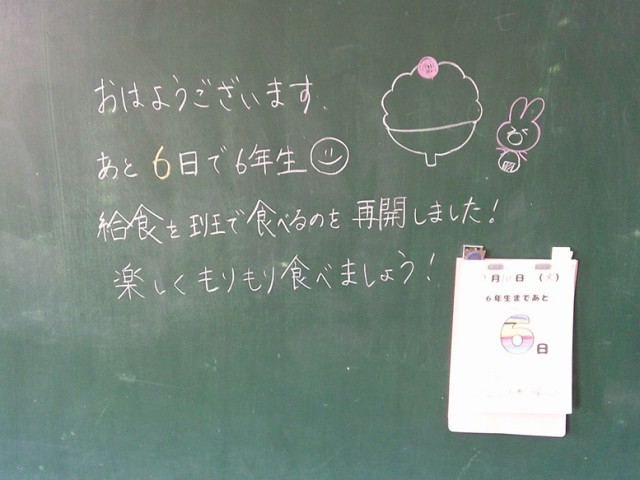 おはようございます、
あと6日で6年生
給食を班で食べるのを再開しました!
楽しくもりもり食べましょう!
月 日 (火)
6年生まであと
6日